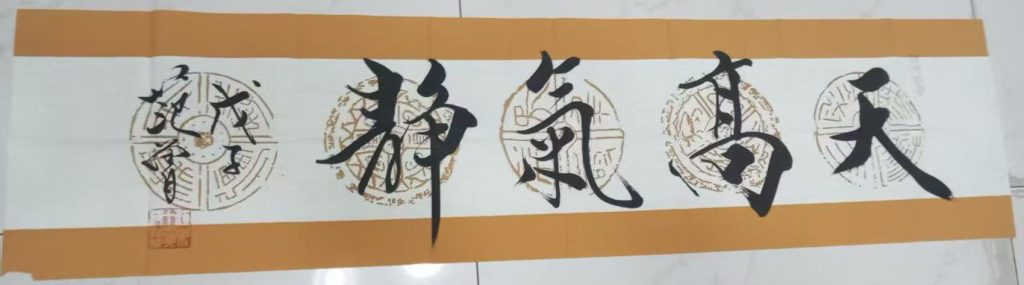 天高氣靜
戊子
范曾